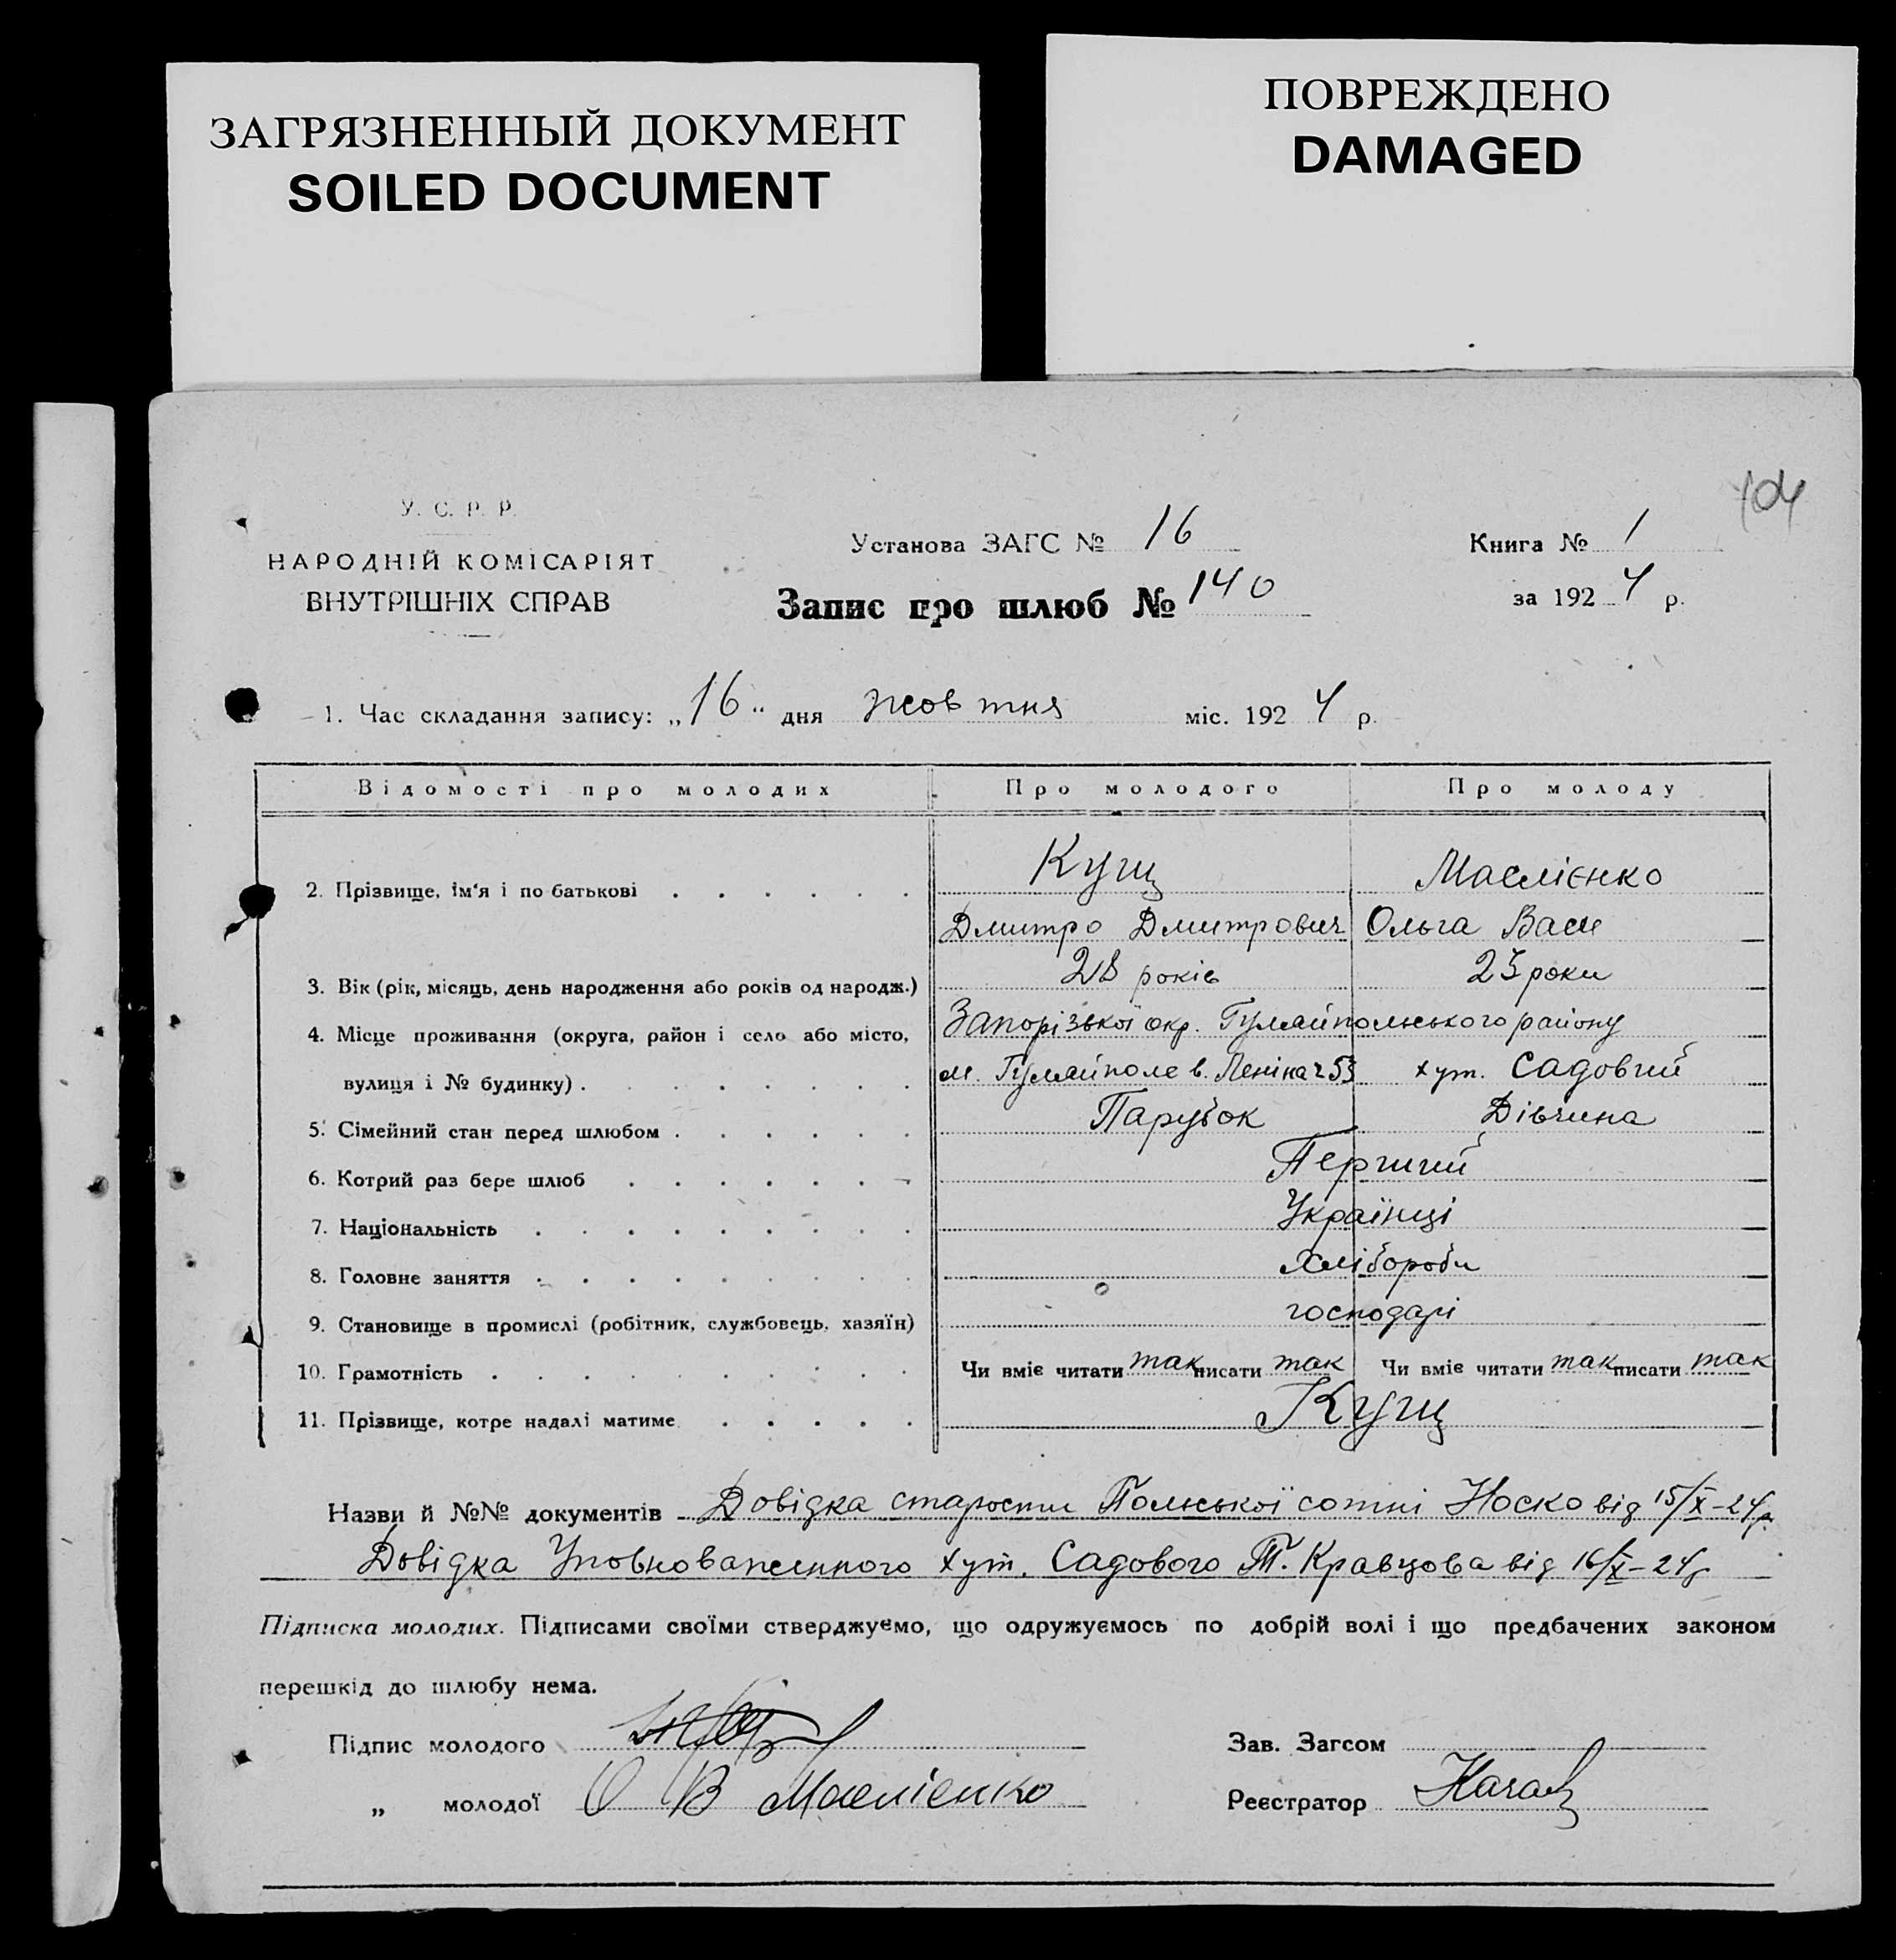 ЗАГРЯЗНЕННЫЙ ДОКУМЕНТ
SOILED DOCUMENT
ПОВРЕЖДЕНО
DAMAGED
104
У. С. Р. Р.
НАРОДНІЙ КОМІСАРІЯТ
ВНУТРІШНІХ СПРАВ
Установа ЗАГС № 16
Книга № 1
Запис про шлюб № 140
за 1924 р.
1. Час складання запису: „16“ дня жовтня міс. 1924 р.
Відомості про молодих Про молодого Про молоду
2. Прізвище, ім'я і по батькові . . . . . . Кущ Маслієнко
Дмитро Дмитрович Ольга Васи
3. Вік (рік, місяць, день народження або років од народж.) 28 років 23 роки
4. Місце проживання (округа, район і село або місто, Запорізької окр. Гуляйпольського району
вулиця і № будинку) . . . . . . м. Гуляйполе в. Леніна 253 хут. Садовий
5. Сімейний стан перед шлюбом . . . . . . Парубок Дівчина
6. Котрий раз бере шлюб . . . . . . Перший
7. Національність . . . . . . . . . Українці
8. Головне заняття . . . . . . . . . Хлібороби
9. Становище в промислі (робітник, службовець, хазяїн) господарі
10. Грамотність . . . . . . . . . . Чи вміє читати так писати так Чи вміє читати так писати так
11. Прізвище, котре надалі матиме . . . . . Кущ
Назви й №№ документів Довідка старости Польської сотні Носко від 15/X-24р.
Довідка Уповноваженного хут. Садового Т. Кравцова від 16/X-24р
Підписка молодих. Підписами своїми стверджуємо, що одружуємось по добрій волі і що предбачених законом
перешкід до шлюбу нема.
Підпис молодого
Зав. Загсом
„ молодої О В Маслієнко
Реєстратор